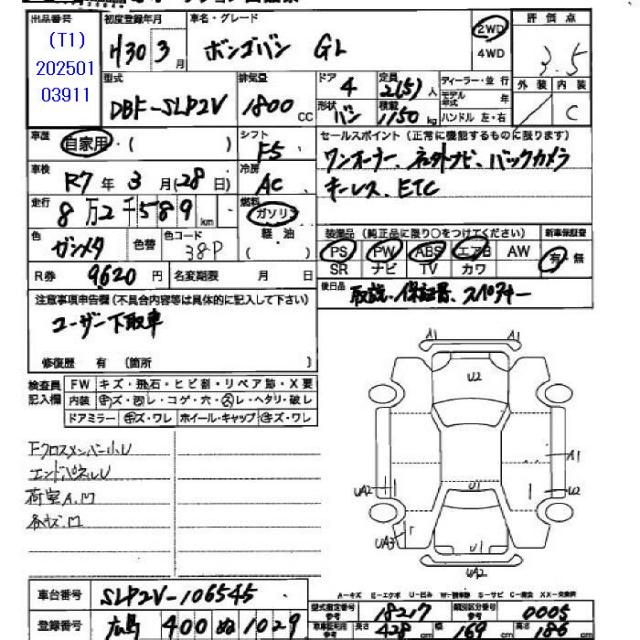 出品番号 初度登録年月 車名・グレード 2WD 4WD 評価点
(T1)
202501
03911
H30 3月 ボンゴバン GL 3.5
型式 排気量 ドア 4 定員 2(5)人 ディーラー・並行 外装 内装
DBF-SLP2V 1800 CC 形状 バン 積載 1150 kg モデル年式 年 ハンドル 左・右 C
車歴 自家用・( ) シフト F5 セールスポイント (正常に機能するものに限ります)
ワンオーナー、ネオトナビ、バックカメラ
車検 R7年 3月(28日) 冷房 AC キーレス、ETC
走行 8万2千589 km 燃料 ガソリン 軽油 ( )
装備品 (純正品に限り○をつけてください) 新車保証書
色 ガンメタ 色替 色コード 38P PS PW ABS エアB AW 有・無
SR ナビ TV カワ
R券 9620円 名変期限 月 日 後日品 取説、保証書、スペアキー
注意事項申告欄 (不具合内容等は具体的に記入して下さい)
ユーザー下取車
修復歴 有 (箇所 )
検査員記入欄 FW キズ・飛石・ヒビ割・リペア跡・X要
内装 キズ・汚レ・コゲ・穴・スレ・ヘタリ・破レ
ドアミラー キズ・ワレ ホイール・キャップ キズ・ワレ
FクロスメンバーハU
エンドパネルU
荷室A.M
各キズ.M
A1 A1
U2
A1
UA2 U1 U2
UA3 U1
UA2
車台番号 SLP2V-106545
A-キズ E-エクボ U-凹み S-サビ C-腐食 XX-交換済
登録番号 広島 400 ぬ 1029
型式指定番号 参考 18217 類別区分番号 参考 0005
車両制限 参考 長さ 428 幅 169 高さ 186